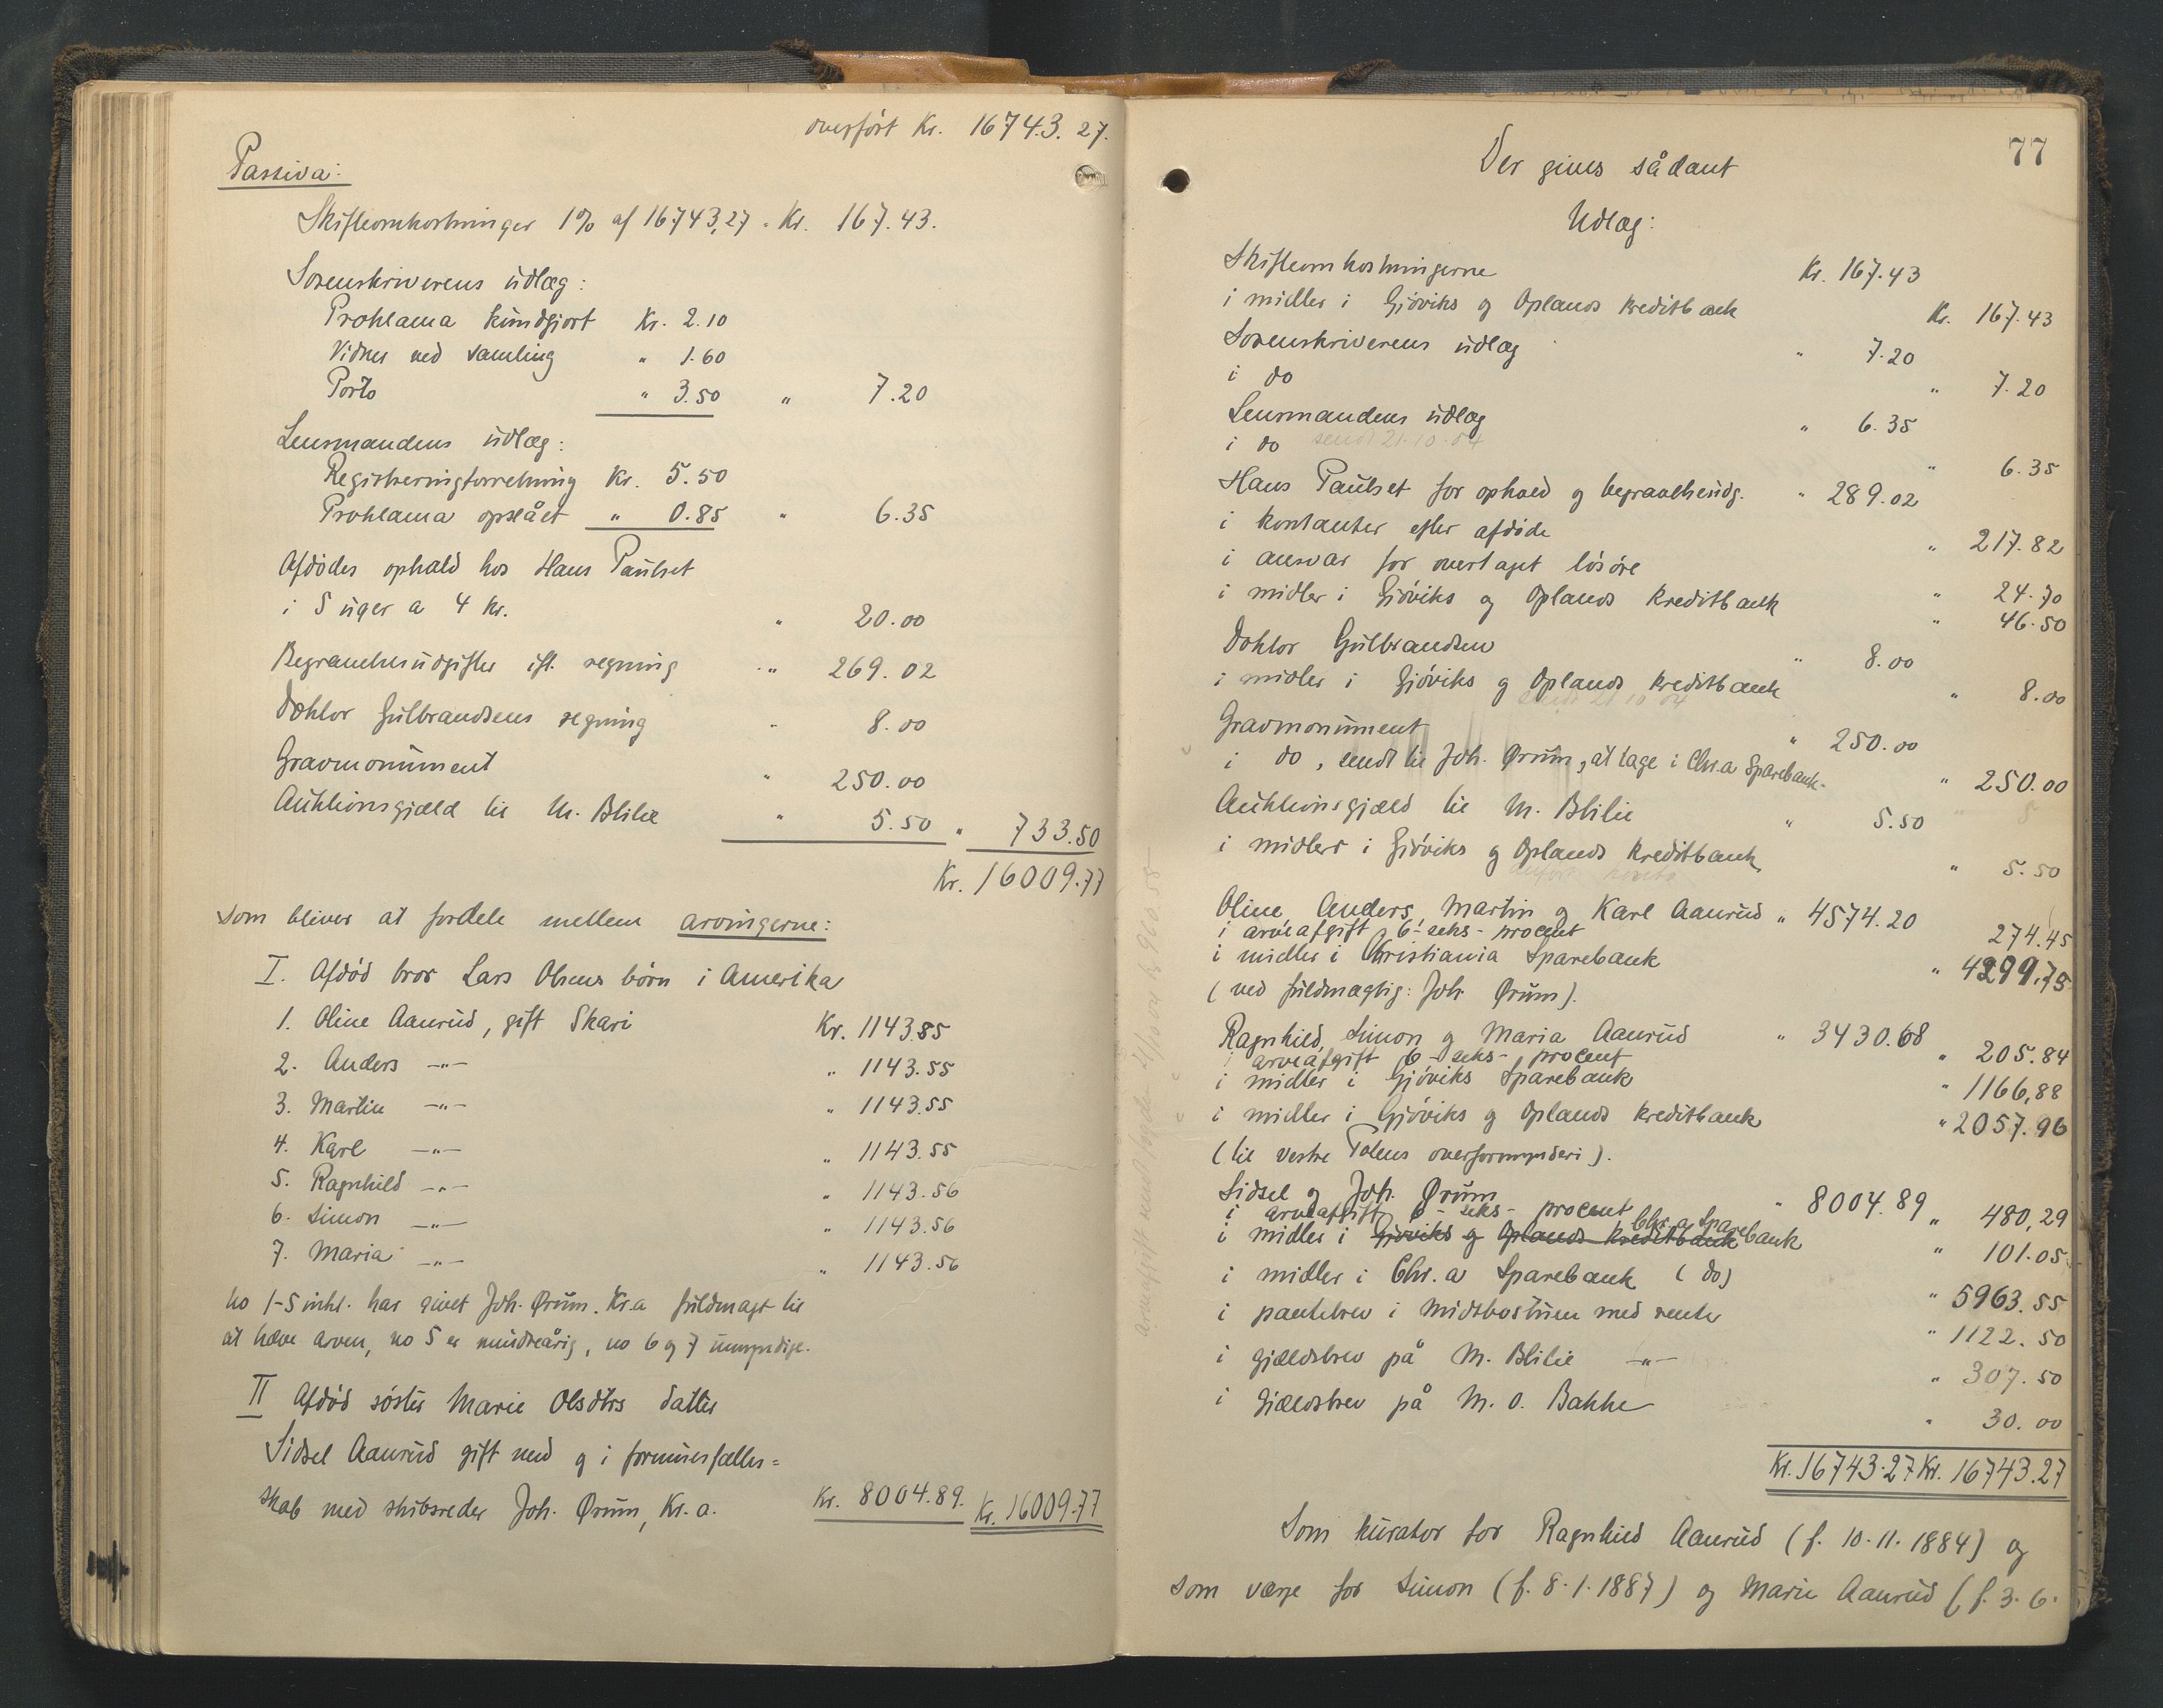 overført Kr. 16743.27.
Passiva:
Skifteomkostninger 1% af 16743,27 = Kr. 167.43.
Sorenskriverens udlæg:
Proklama kundgjort Kr. 2.10
Vidner ved samling " 1.60
Porto " 3.50 " 7.20
Lensmandens udlæg:
Registreringsforretning Kr. 5.50
Proklama opslået " 0.85 " 6.35
Afdødes ophold hos Hans Paulset
i 5 uger a 4 kr. " 20.00
Begravelsesudgifter ifl. regning " 269.02
Doktor Gulbrandsens regning " 8.00
Gravmonument " 250.00
Auktionsgjæld til M. Blilie " 5.50 " 733.50
Kr. 16009.77
som bliver at fordele mellem arvingerne:
I. Afdød bror Lars Olsens børn i Amerika
1. Oline Aanrud, gift Skari Kr. 1143.55
2. Anders —"— " 1143.55
3. Martin —"— " 1143.55
4. Karl —"— " 1143.55
5. Ragnhild —"— " 1143.56
6. Simon —"— " 1143.56
7. Maria —"— " 1143.56
no 1-5 inkl. har givet Joh. Ørum. Kr.a fuldmagt til
at hæve arven, no 5 er mindreårig, no 6 og 7 umyndige.
II Afdød søster Marie Olsdtrs datter
Sidsel Aanrud gift med og i formuesfælles=
skab med skibsreder Joh. Ørum, Kr.a. Kr. 8004.89. Kr. 16009.77
77
Der gives sådant
Udlæg:
Skifteomkostningerne Kr. 167.43
i midler i Gjøviks og Oplands kreditbank Kr. 167.43
Sorenskriverens udlæg " 7.20
i do " 7.20
Lensmandens udlæg " 6.35
i do sendt 21.10.04 " 6.35
Hans Paulset for ophold og begravelsesudg. " 289.02
i kontanter efter afdøde " 217.82
i ansvar for overtaget løsøre " 24.70
i midler i Gjøviks og Oplands kreditbank " 46.50
Doktor Gulbrandsen " 8.00
i midler i Gjøviks og Oplands kreditbank " 8.00
sendt 21 10 04
Gravmonument " 250.00
i do, sendt til Joh. Ørum, at tage i Chr.a Sparebank. " 250.00
Auktionsgjæld til M. Blilie " 5.50
i midler i Gjøviks og Oplands kreditbank " 5.50
Oline, Anders, Martin og Karl Aanrud " 4574.20
i arveafgift 6 - seks - procent 274.45
i midler i Christiania Sparebank " 4299.75
(ved fuldmægtig: Joh. Ørum).
Ragnhild, Simon og Maria Aanrud " 3430.68
i arveafgift 6 - seks - procent " 205.84
i midler i Gjøviks Sparebank " 1166,88
i midler i Gjøviks og Oplands kreditbank " 2057.96
(til Vestre Totens overformynderi).
Sidsel og Joh. Ørum " 8004.89
i arveafgift 6 - seks - procent " 480,29
i midler i Gjøviks og Oplands kreditbank Chr.a Sparebank " 101.05
i midler i Chr.a Sparebank (do) " 5963.55
i pantebrev i Midtbøstuen med renter " 1122.50
i gjældsbrev på M. Blilie —"— " 307.50
i gjældsbrev på M. O. Bakke " 30.00
Kr. 16743.27 Kr. 16743.27
Som kurator for Ragnhild Aanrud (f. 10.11.1884) og
som værge for Simon (f. 8.1.1887) og Marie Aanrud (f. 3.6.